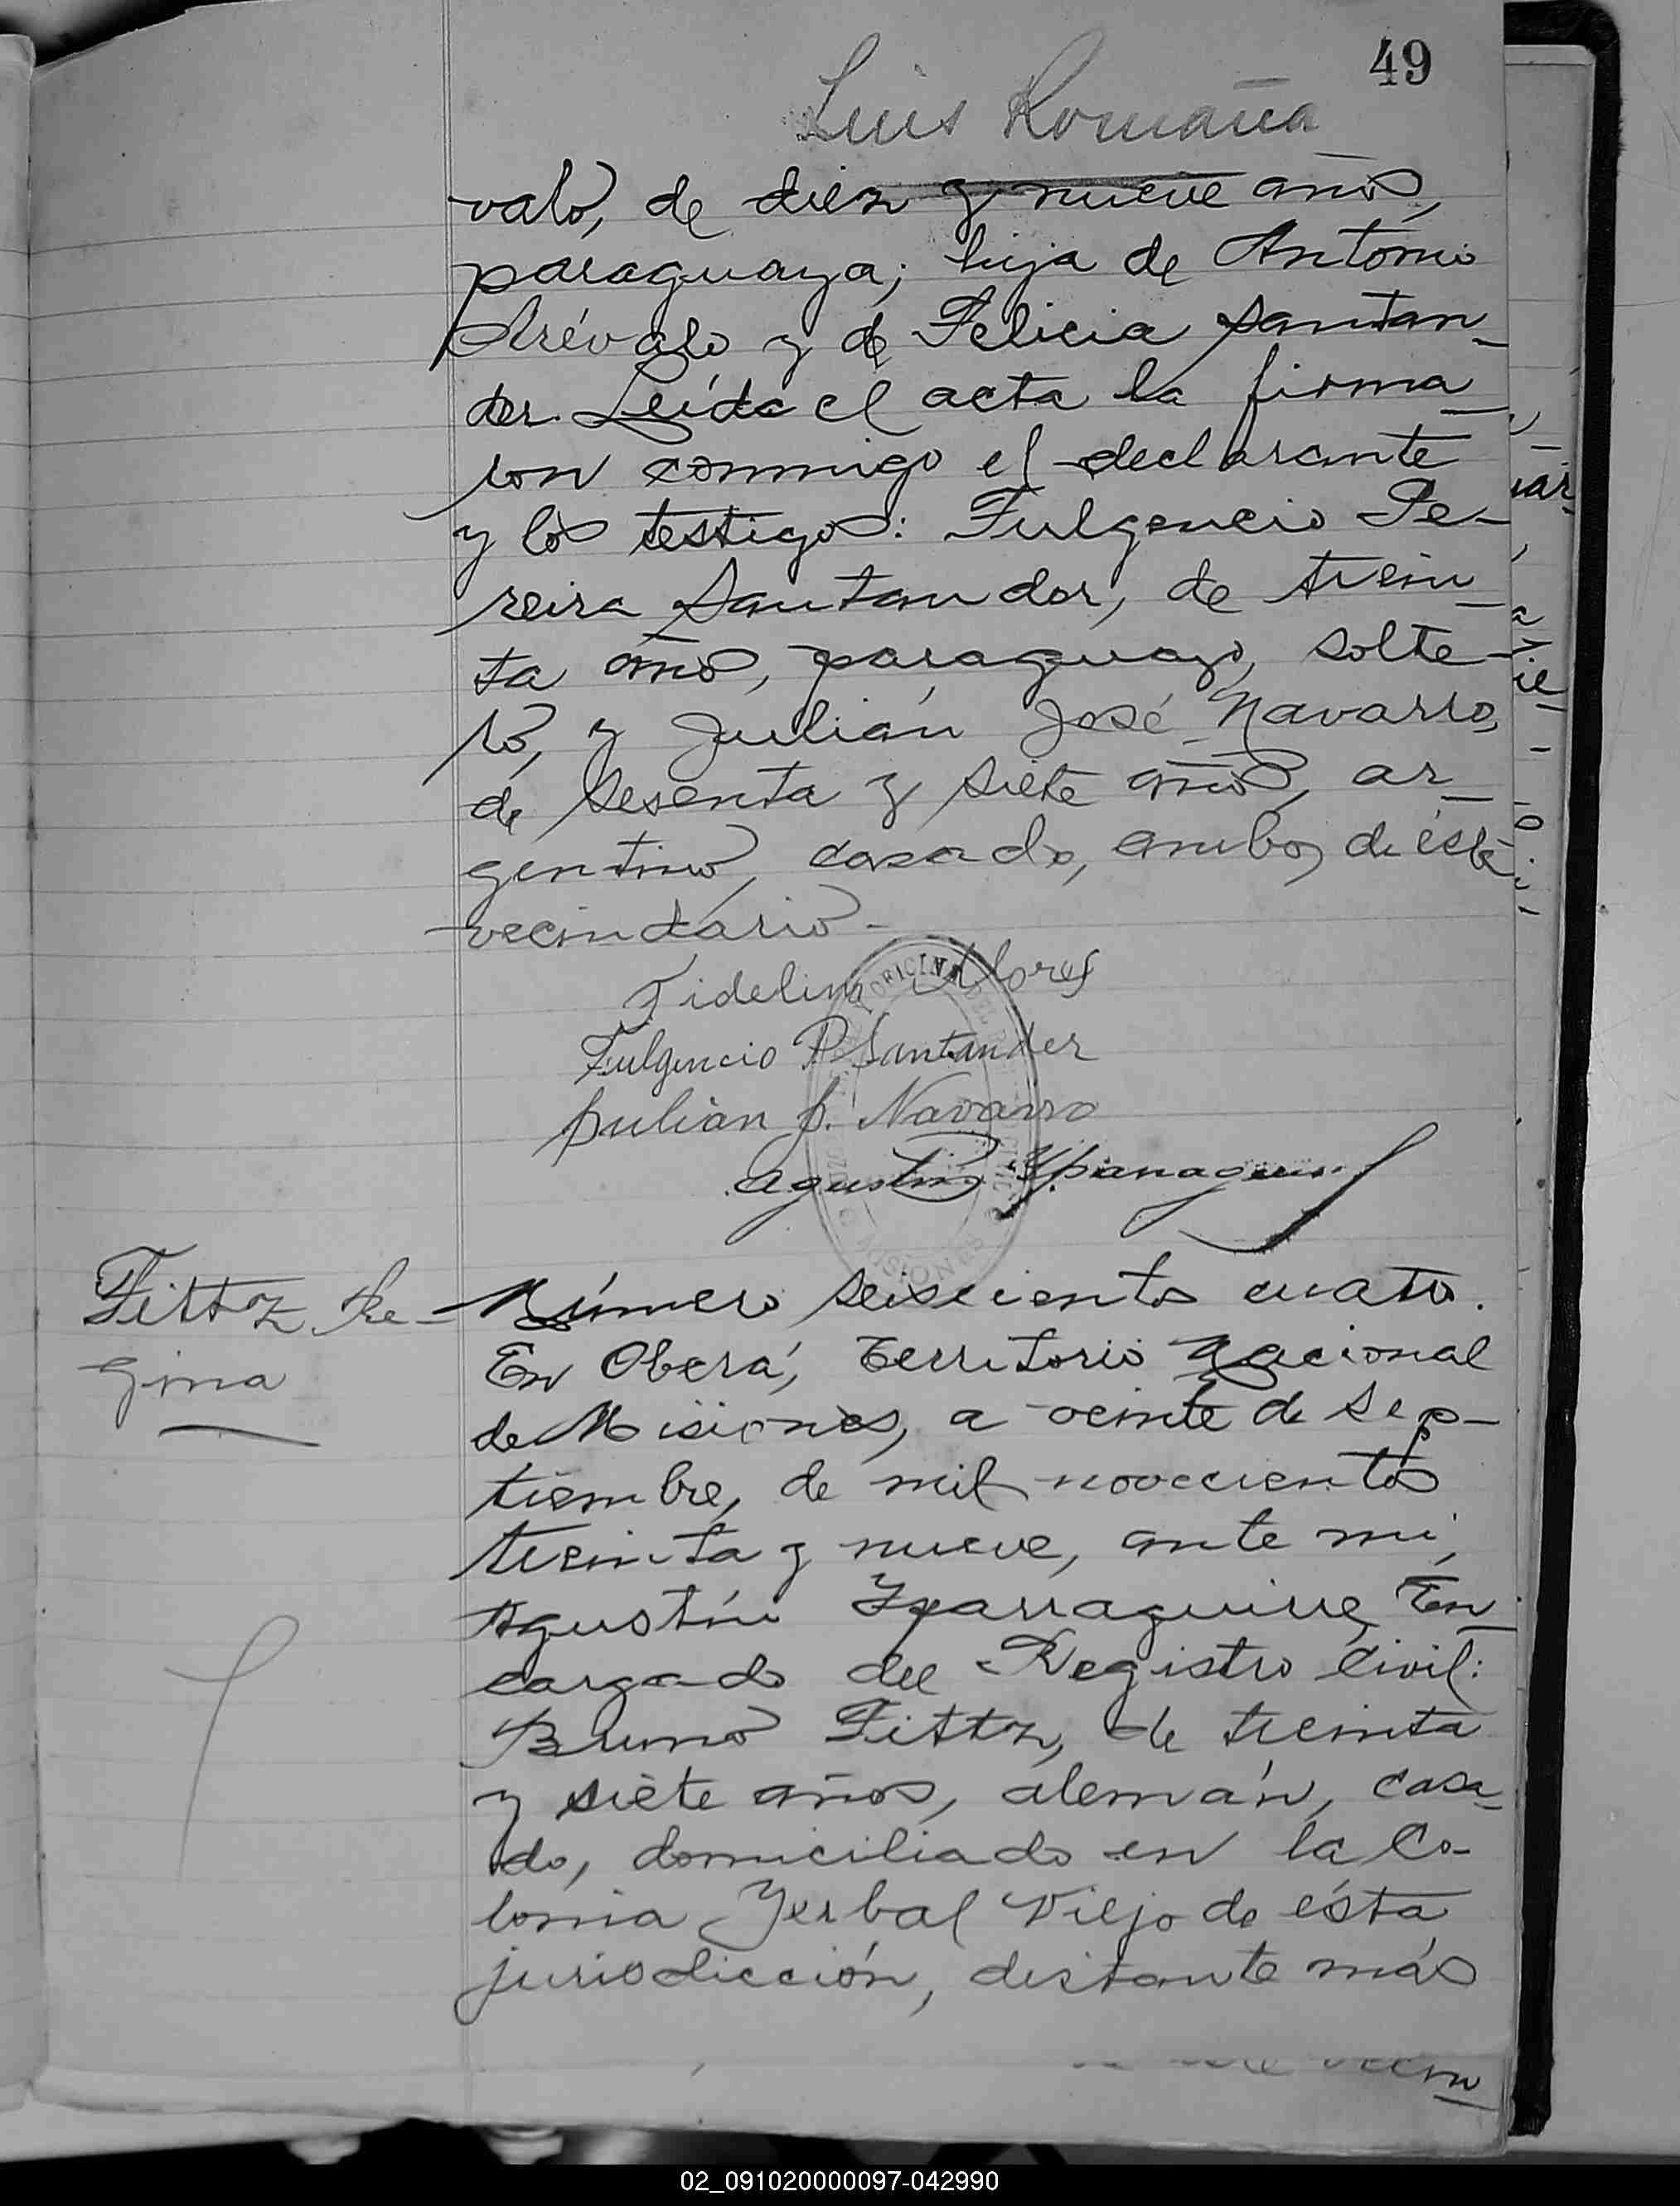 49
Luis Romaña
valo, de diez y nueve años,
paraguaya; hija de Antonio
Arévalo y de Felicia Santan-
der. Leída el acta la firma-
ron conmigo el declarante
y los testigos: Fulgencio Pe-
reira Santander, de trein-
ta años, paraguayo, solte-
ro, y Julián José Navarro,
de sesenta y siete años, ar-
gentino, casado, ambos de éste
vecindario-
Fidelino Flores
Fulgencio P. Santander
Julian J. Navarro
Agustín Yparraguirre
OFICINA DEL
MISIONES
Fittz Re-
gina
Número seiscientos cuatro.
En Oberá, Territorio Nacional
de Misiones, a veinte de Sep-
tiembre, de mil novecientos
treinta y nueve, ante mi,
Agustín Yparraguirre, En-
cargado del Registro Civil:
Bruno Fittz, de treinta
y siete años, alemán, casa-
do, domiciliado en la Co-
lonia Yerbal Viejo de ésta
jurisdicción, distante más
02_091020000097-042990